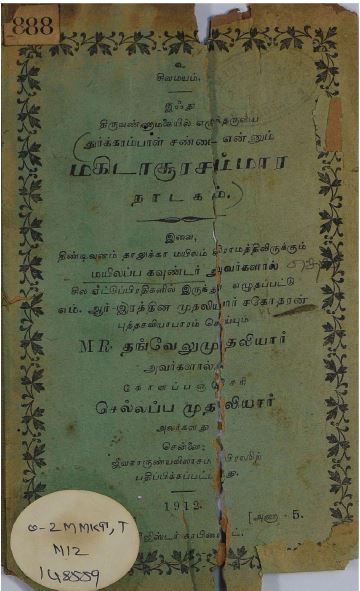 888
உ
சிவமயம்.
இஃது
திருவண்ணாமலையில் எழுந்தருளிய
துர்க்காப்பாள் சண்டை என்னும்
மகிடாசூரசம்மார
நாடகம்.
இவை,
திண்டிவனம் தாலுக்கா மயிலம் கிராமத்திலிருக்கும்
மயிலப்ப கவுண்டர் அவர்களால்
சில ஏட்டுப்பிரதிகளில் இருந்து எழுதப்பட்டு
எம். ஆர் இரத்தின முதலியார் சகோதரன்
புத்தகவியாபாரம் செய்யும்
MR. தங்வேலுமுதலியார்
அவர்களால்
கோனப்பளஞ்சேரி
செல்லப்ப முதலியார்
அவர்களது
சென்னை:
ஜீவகாருண்யவிலாசம் பிரஸில்
பதிப்பிக்கப்பட்டது.
1912.
[அணா - 5.
ஜிஸ்டர் காபிரைட்.
ல-2MMKA, T
M12
148559